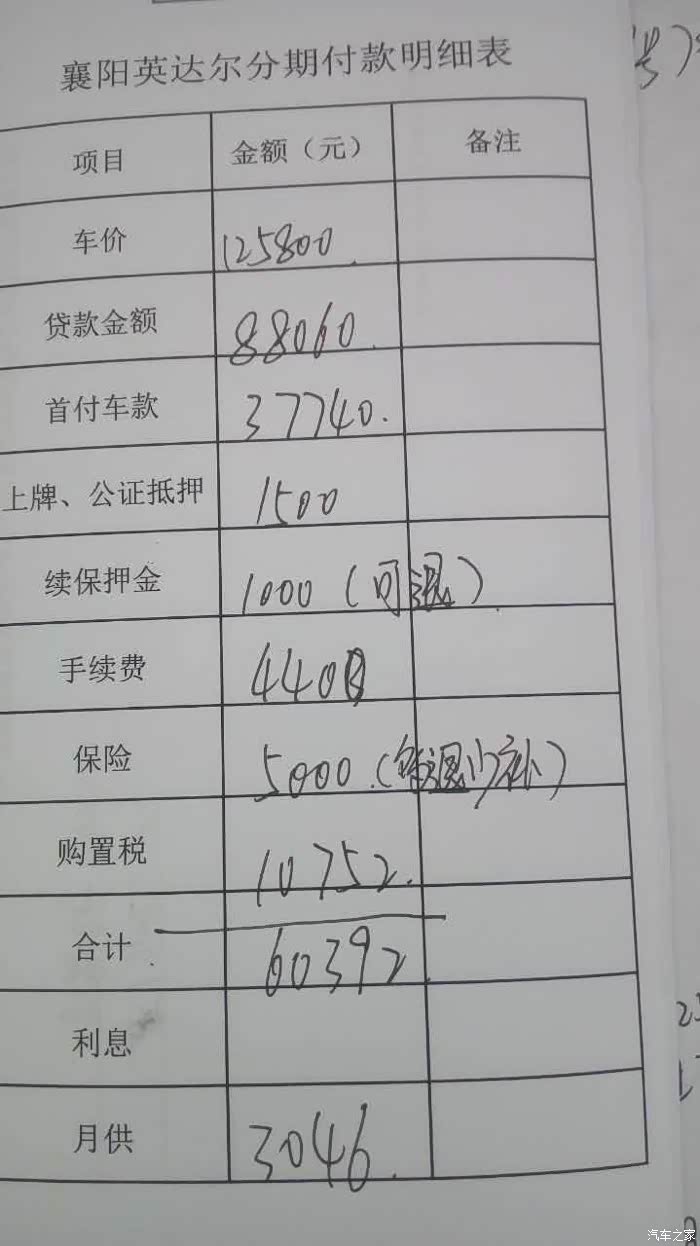 襄阳英达尔分期付款明细表
项目 金额（元） 备注
车价 125800.
贷款金额 88060.
首付车款 37740.
上牌、公证抵押 1500
续保押金 1000（可退）
手续费 4400
保险 5000.（多退少补）
购置税 10752.
合计 60392
利息
月供 3046.
号）
汽车之家